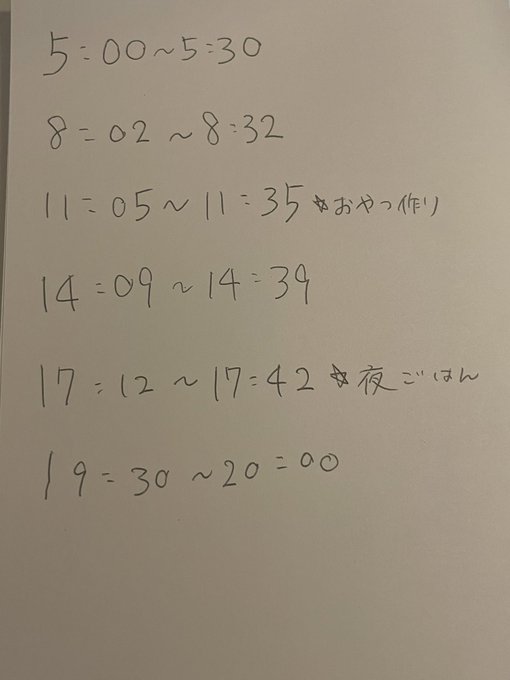 5:00~5:30
8:02~8:32
11:05~11:35 ☆おやつ作り
14:09~14:39
17:12~17:42 ☆夜ごはん
19:30~20:00